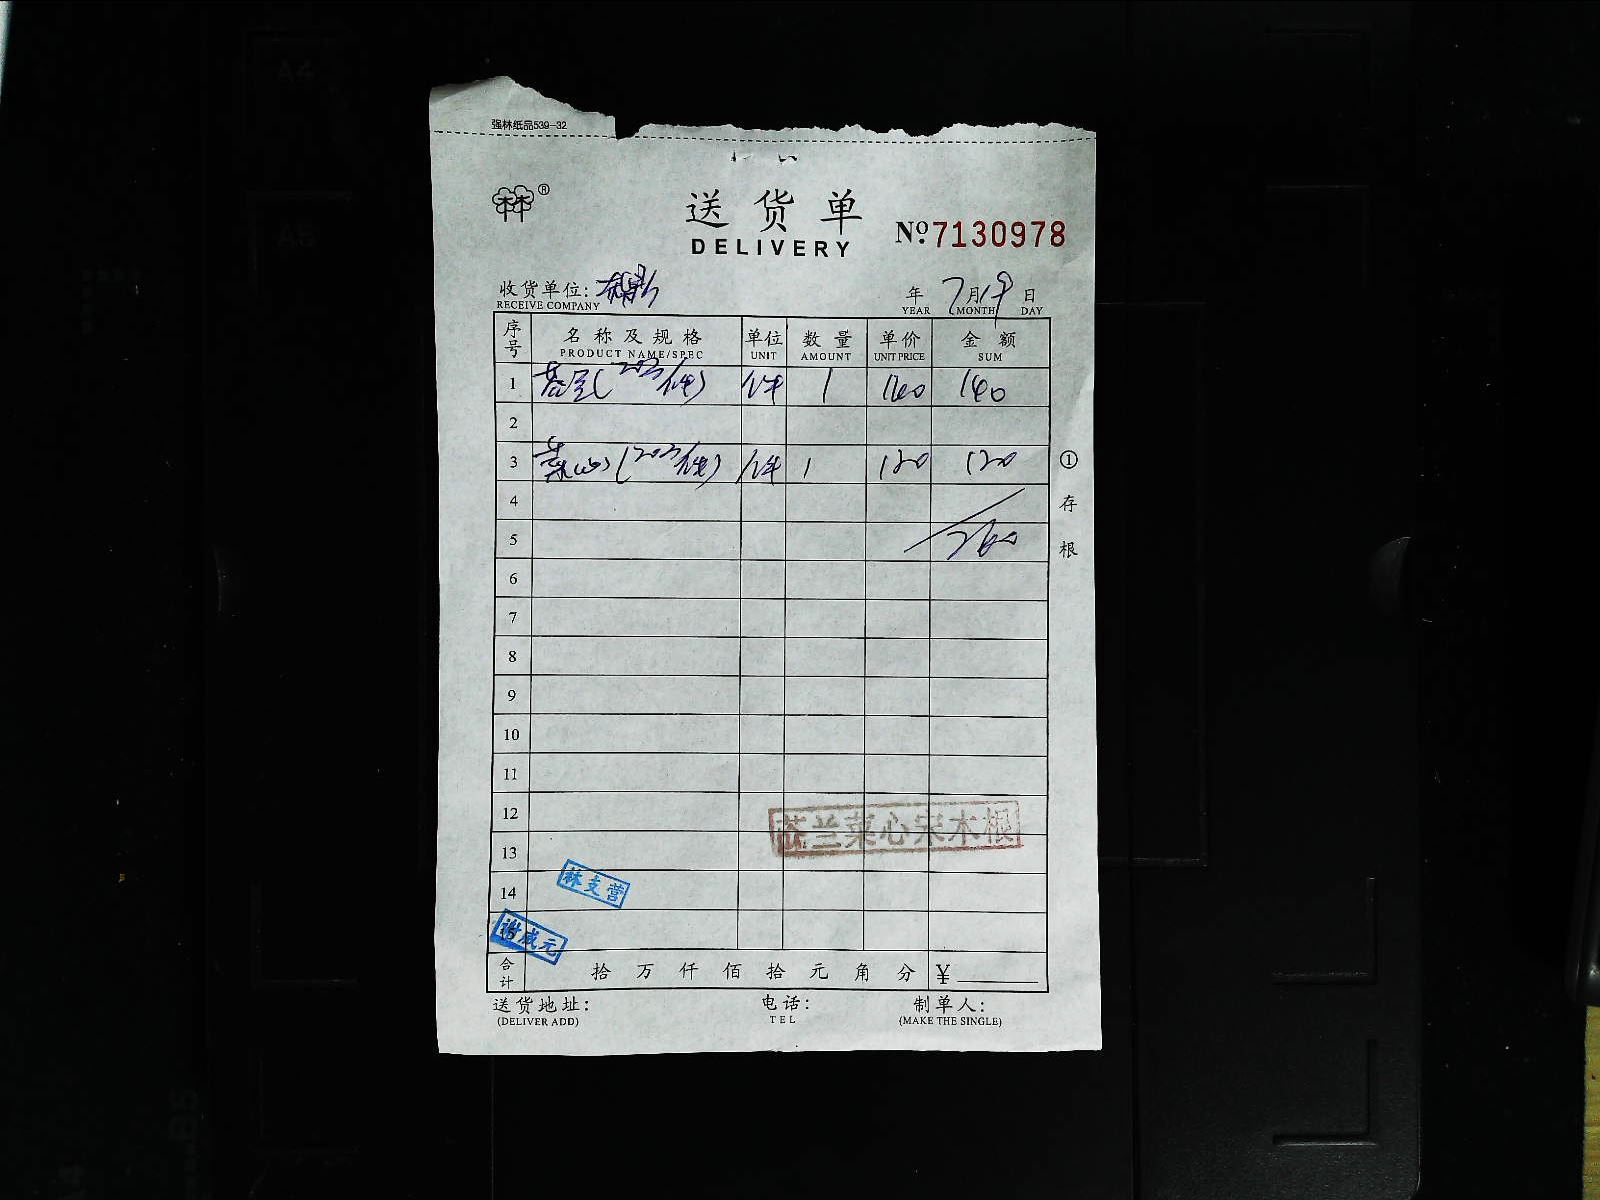 强林纸品539-32
林林®
送货单
DELIVERY
Nº:7130978
收货单位:
RECEIVE COMPANY
年 7月19日
YEAR MONTH DAY
序号 名称及规格 单位 数量 单价 金额
PRODUCT NAME/SPEC UNIT AMOUNT UNIT PRICE SUM
1 (20斤/件) 件 1 140 140
2
3 菜心(20斤/件) 件 1 120 120
4
5 260
6
7
8
9
10
11
12
13
14
15
芥兰菜心宋木根
林支营
谢咸元
合计 拾 万 仟 佰 拾 元 角 分 ¥
送货地址: 电话: 制单人:
(DELIVER ADD) TEL (MAKE THE SINGLE)
①存根